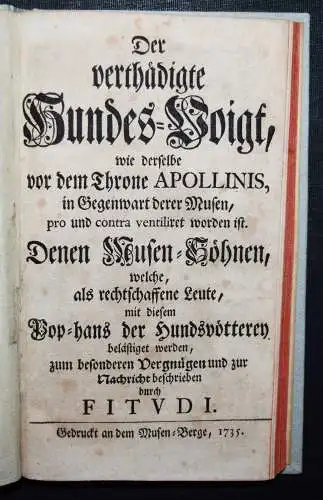 Der
verthädigte
Hundes-Voigt,
wie derselbe
vor dem Throne APOLLINIS,
in Gegenwart derer Musen,
pro und contra ventiliret worden ist.
Denen Musen-Söhnen,
welche,
als rechtschaffene Leute,
mit diesem
Pop-hans der Hundsvötterey
belästiget werden,
zum besonderen Vergnügen und zur
Nachricht beschrieben
durch
FITVDI.
Gedruckt an dem Musen-Berge, 1735.